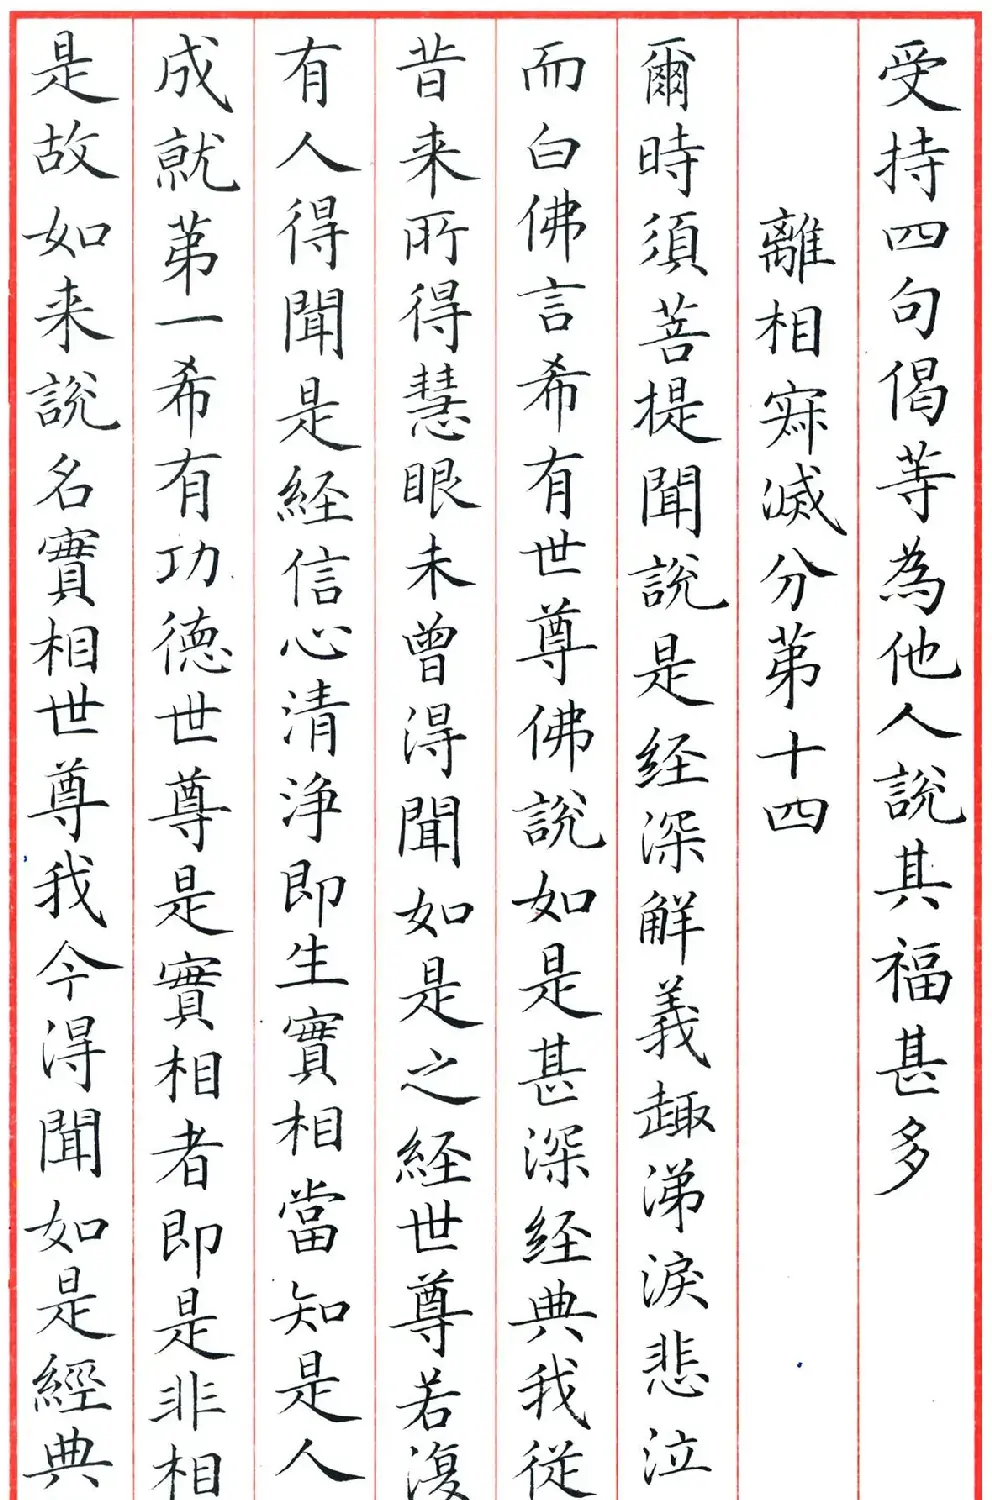 受持四句偈等為他人說其福甚多
離相寂滅分第十四
爾時須菩提聞說是経深解義趣涕淚悲泣
而白佛言希有世尊佛說如是甚深経典我從
昔来所得慧眼未曾得聞如是之経世尊若復
有人得聞是経信心清淨即生實相當知是人
成就第一希有功德世尊是實相者即是非相
是故如来說名實相世尊我今得聞如是經典